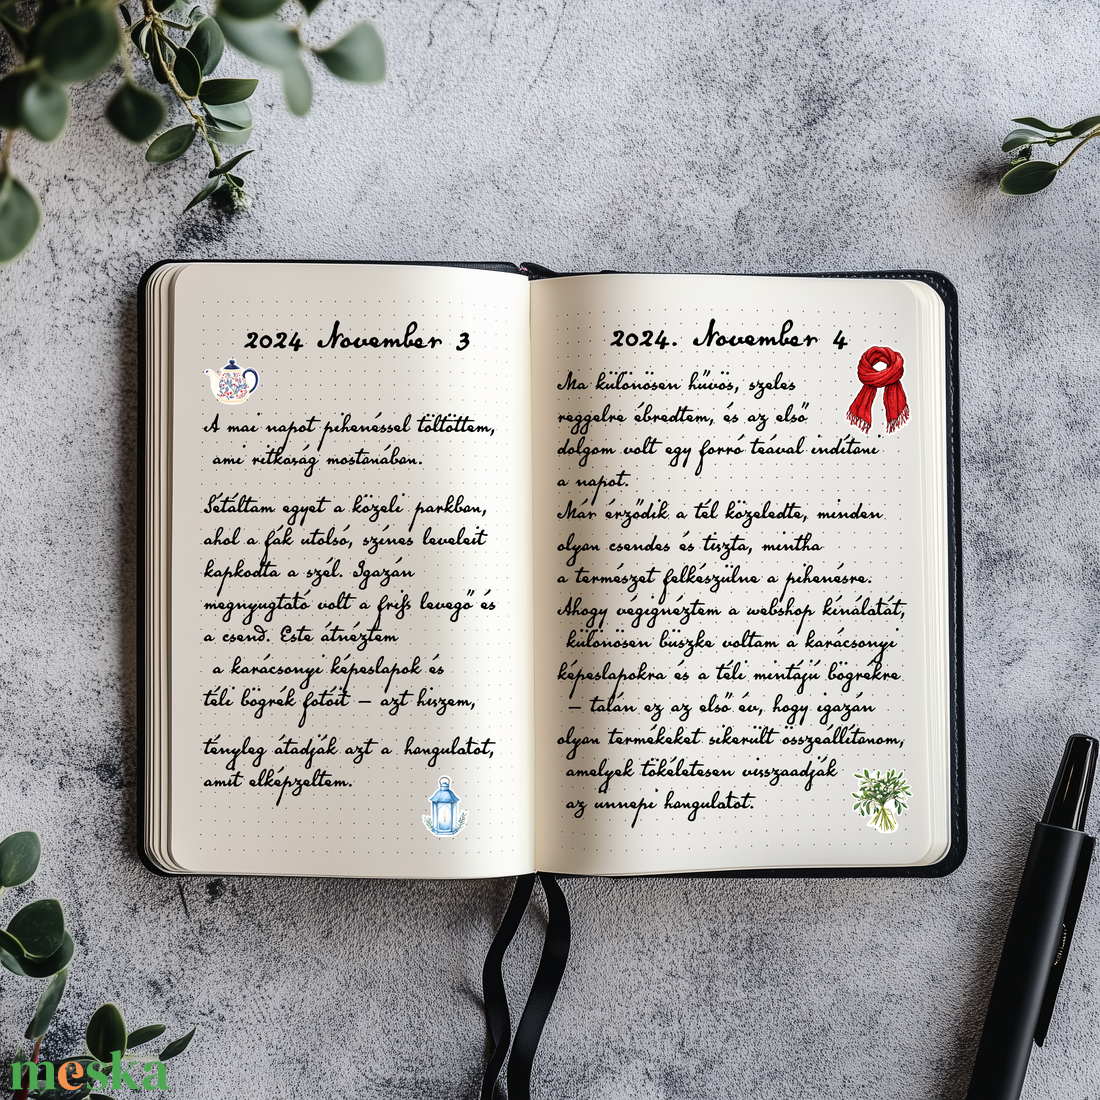 2024 November 3
A mai napot pihenéssel töltöttem,
ami ritkaság mostanában.
Sétáltam egyet a közeli parkban,
ahol a fák utolsó, színes leveleit
kapkodta a szél. Igazán
megnyugtató volt a friss levegő és
a csend. Este átnéztem
a karácsonyi képeslapok és
téli bögrék fotóit – azt hiszem,
tényleg átadják azt a hangulatot,
amit elképzeltem.
2024. November 4
Ma különösen hűvös, szeles
reggelre ébredtem, és az első
dolgom volt egy forró teával indítani
a napot.
Már érződik a tél közeledte, minden
olyan csendes és tiszta, mintha
a természet felkészülne a pihenésre.
Ahogy végignéztem a webshop kínálatát,
különösen büszke voltam a karácsonyi
képeslapokra és a téli mintájú bögrékre
– talán ez az első év, hogy igazán
olyan termékeket sikerült összeállítanom,
amelyek tökéletesen visszaadják
az ünnepi hangulatot.
meska